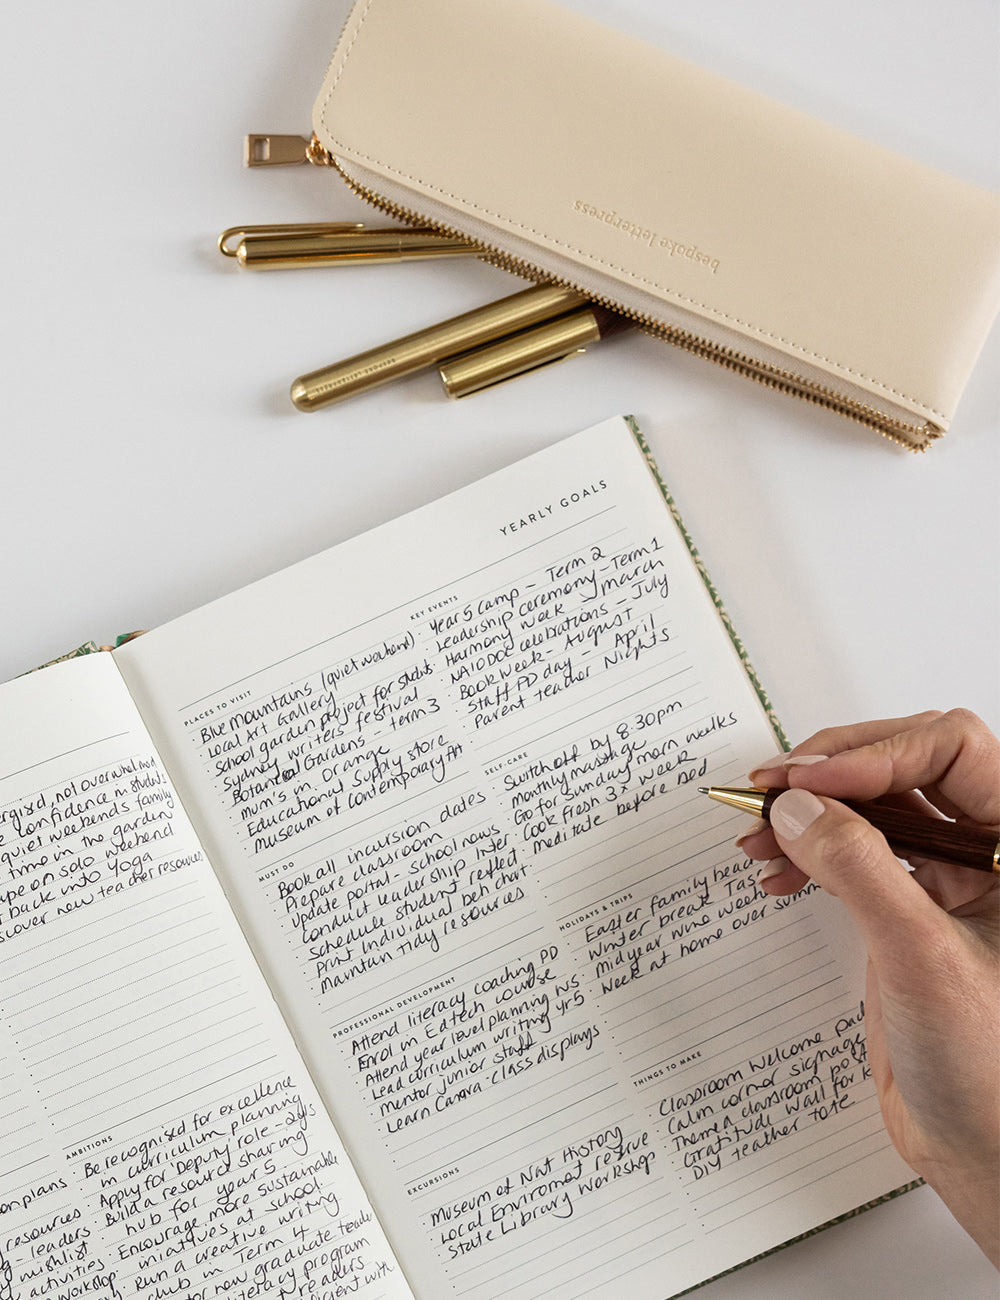 bespoke letterpress
BESPOKE LETTERPRESS
YEARLY GOALS
PLACES TO VISIT
Blue mountains (quiet weekend)
Local Art Gallery
School garden project for
Sydney writers festival
Botanical Gardens - term 3
mum's in Orange
Educational Supply store
Museum of Contemporary Art
KEY EVENTS
Year 5 camp - Term 2
Leadership ceremony - Term 1
Harmony week - march
NAIDOC celebrations - July
Book Week - August
Staff PD day - April
Parent teacher Nights
SELF-CARE
Switch off by 8:30pm
monthly massage
Go for Sunday morn walks
Cook fresh 3x week
meditate before bed
MUST DO
Book all incursion dates
Prepare classroom
Update portal - school news
Conduct leadership inter
Schedule student reflect.
Print individual beh chart
Maintain tidy resources
HOLIDAYS & TRIPS
Easter family beac
Winter break Tas
mid year wine week
Week at home over summ
PROFESSIONAL DEVELOPMENT
Attend literacy coaching PD
Enrol in Ed tech course
Attend year level planning WS
Lead curriculum writing yr5
mentor junior staff
Learn Canva - class displays
THINGS TO MAKE
Classroom Welcome pac
Calm corner signage
Themed classroom post
Gratitude wall for
DIY teacher tote
EXCURSIONS
Museum of Nat History
Local Enviroment reserve
State Library Workshop
ergised, not overwhelmed
confidence in students
quiet weekends family
time in the garden
ape on solo weekend
back into Yoga
scover new teacher resources
AMBITIONS
Be recognised for excellence
in curriculum planning
Apply for Deputy role - 2yrs
Build a resource sharing
hub for year 5
Encourage more sustainable
iniatives at school.
Run a creative writing
club in Term 4
for new graduate teache
literacy program
readers
icient with
on plans
resources
- leaders
wishlist
activities
workshop